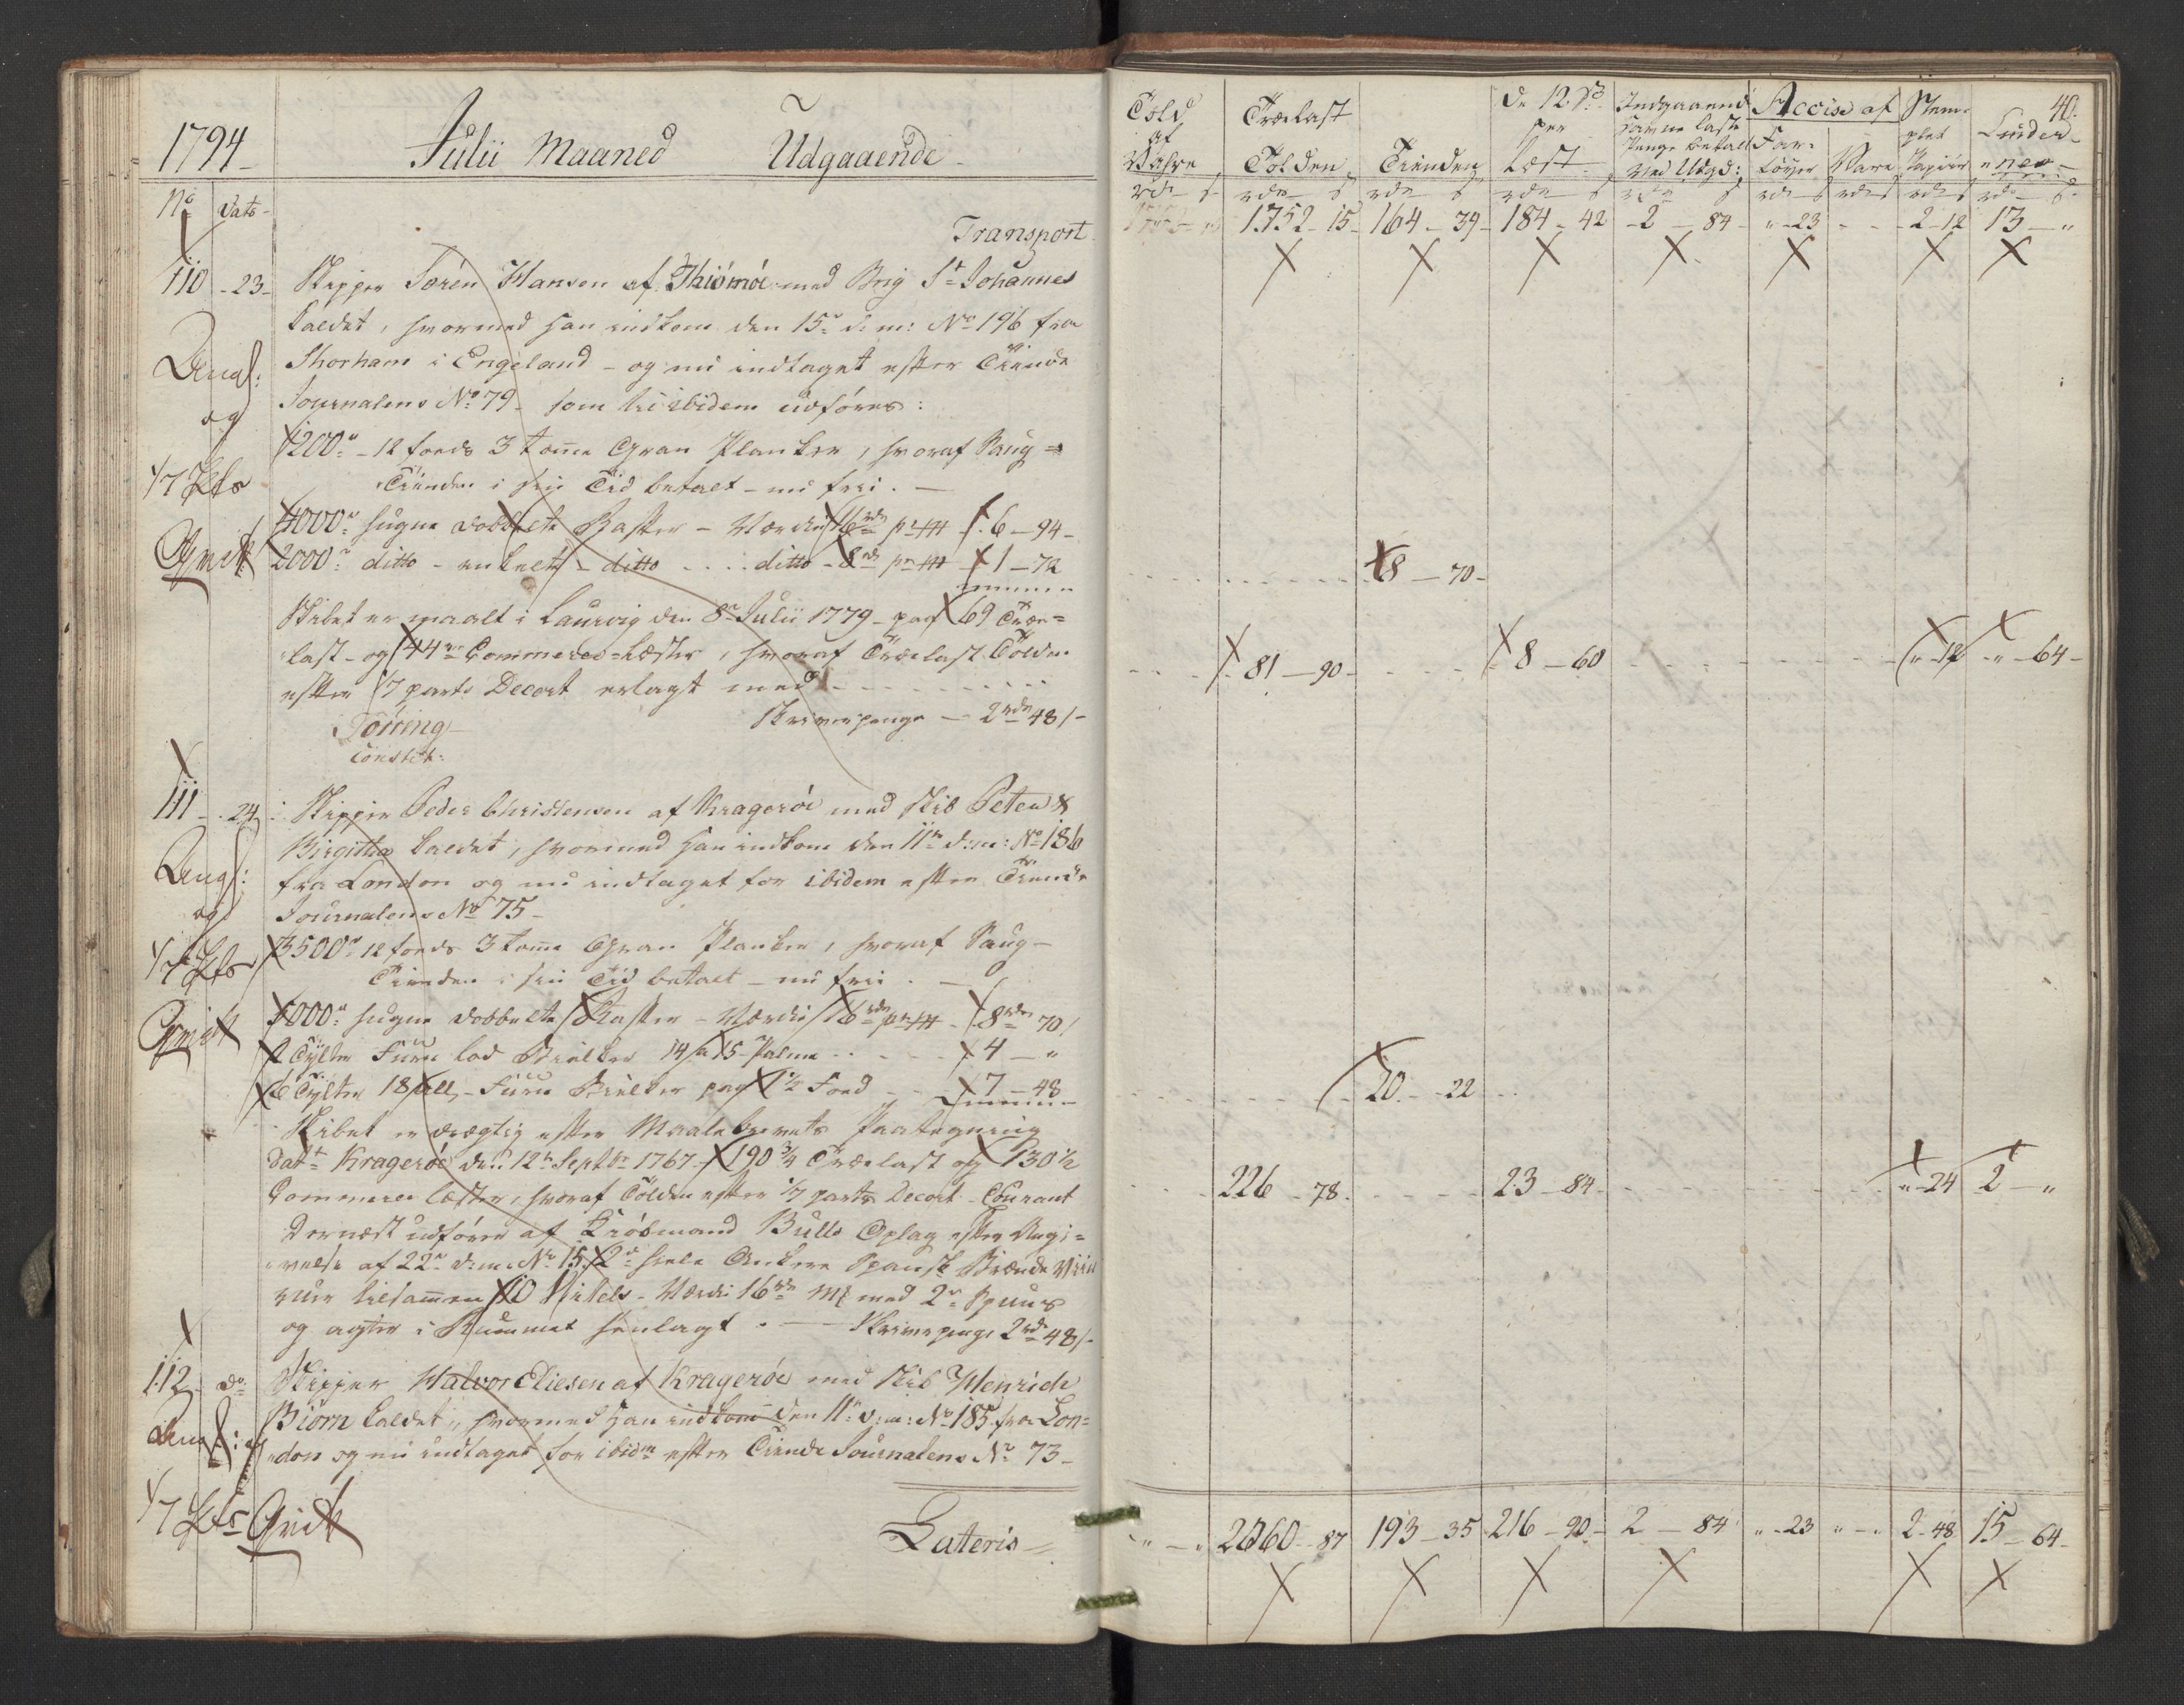 1794 Julii Maaned Udgaaende
No Dato
Transport
110 - 23 - Skipper Sørén Hansen af Thiömöe med Brig St Johannes
kaldet, hvormed han indkom den 15de d: m: No 196 fra
Shorham i Engeland - og nu indtaget efter Tiende
Journalens No 79 - som til ibidem udføres:
og
1200 - 12 fods 3 tome Gran Planker, hvoraf Saug =
Tienden i sin Tid betalt - nu frii. -
1/7 
4000 hugne dobbelte Bafter - Værdie 16 rdr pr M 6 - 94 -
Qvit 2000 ditto - enkelt - ditto .... ditto - 8 rd pr M 1 - 72
Skibet er maalt i Laurvig den 8de Julii 1779 - paa 69 Træe=
last - og 44 Commerce-Læster, hvoraf Trælast Tolden
efter 1/7 parts Decort erlagt med - - - - - - -
Skriverpenge - 2 rdr 48 s -
Töring
Constit:
111 - 24 Skipper Peder Christensen af Kragerøe med Skib Peter &
Birgitha kaldet, hvormed han indkom den 11te d: m: No 186
fra London og nu indtaget for ibidem efter Tiende
og Journalens No 75 -
1/7 3500 12 fods 3 tome Gran Planker, hvoraf Saug -
Tienden i sin Tid betalt - nu frii. -
5000 hugne dobbelte Bafter - Værdie 16 rdr pr M - 8 rdr 70 s
Qvit 2 Tylter Furu lod Bielker 14 a 15 Palme - - - 4 - "
6 Tylter 18 all - Furu Bielker paa 1 1/2 Fod - - 7 - 48
Skibet er drægtig efter Maalebrevets Paategning
Datt Kragerøe den 12te Septbr 1767 - 190 3/4 Trælast og 130 1/2
Commerce læster, hvoraf Tolden efter 1/7 parts Decort - Courant
Dernæst udføres af Kiöbmand Bulls Oplag efter Angi=
velse af 22de d: m: No 15. 2de hele Ankere Spansk Brænde Viin
tilsamen 10 Virtels - Værdi 16 rdr med 2de Spuns
og agter i Rummet henlagt. - Skriverpenge 2 rd 48 s -
112 - do Skipper Halvor Eliesen af Kragerøe med Skib Henrich
Biörn kaldet, hvormed han indkom den 11te d: m: No 185 fra Lon=
don og nu indtaget for ibidm efter Tiende Journalens No 73 -
1/7 Qvit
Lateris
40.
Told af Vahre Trælast Tolden Tienden De 12 s per Læst Indgaaend havne laste Penge betalt ved Udgd: Accise af Far- töyer Vare Stem- plet Papiir Luder- nes
1752 - 15 - 164 - 39 - 184 - 42 - 2 - 84 - " - 23 - - - 2 - 12 13 - "
8 - 70 -
81 - 90 - 8 - 60 " - 12 - " - 64 -
20 - 22
226 - 78 - 23 - 84 - " - 24 2 - "
" - " 2060 - 87 193 - 35 216 - 90 - 2 - 84 " - 23 " - " 2 - 48 15 - 64 -